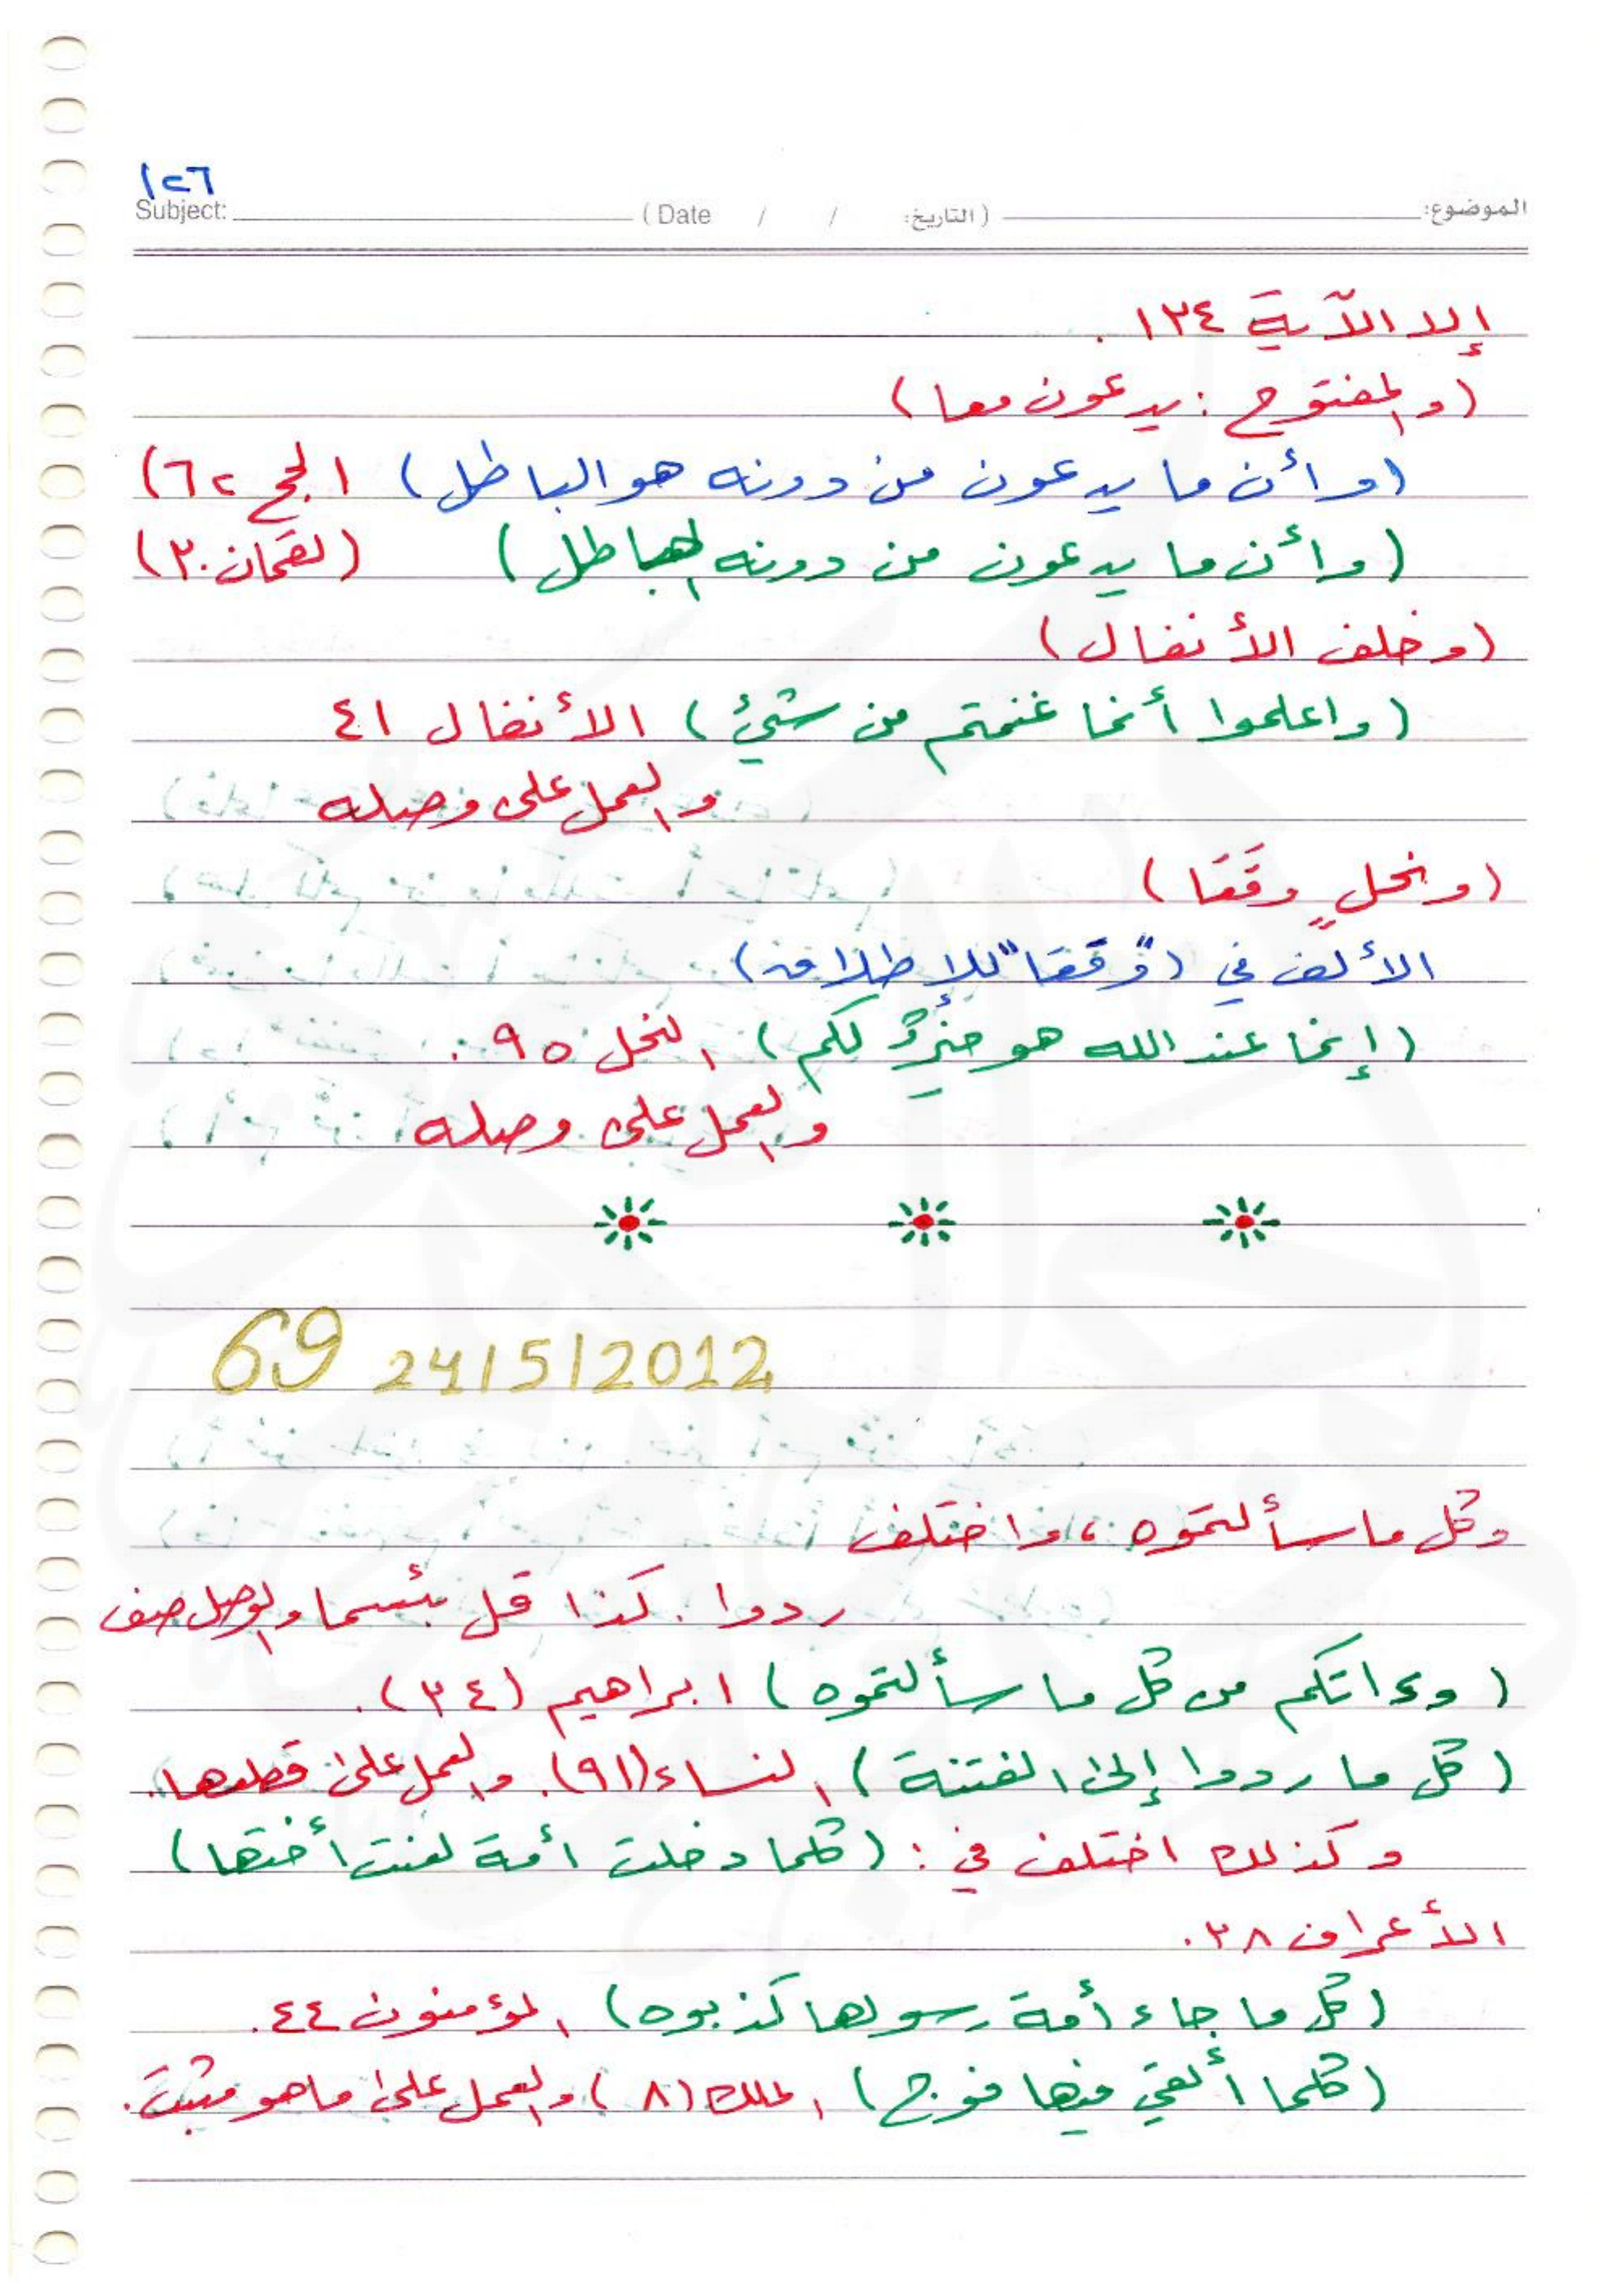 ١٢٦
Subject: ( Date / / التاريخ: ) الموضوع:
إلا الآية ١٣٤ .
(والمفتوح : يدعون معا)
(وأن ما يدعون من دونه هو الباطل) الحج ٦٢)
(وأن ما يدعون من دونه الباطل) (لقمان ٣٠)
(وخلف الأنفال)
(واعلموا أنما غنمتم من شيء) الأنفال ٤١
والعمل على وصله
(ونحلٍ وقَعَا)
الألف في (وقعا" للإطلاق)
(إنما عند الله هو خير لكم) النحل ٩٥ .
والعمل على وصله
69 24/5/2012
وكل ما سألتموه ، واختلف
ردوا . كذا قل بئسما والوصل صف
(وءاتكم من كل ما سألتموه) ابراهيم (٣٤) .
(كل ما ردوا إلى الفتنة) النساء (٩١) . والعمل على قطعها .
وكذلك اختلف في : (كلما دخلت أمة لعنت أختها)
الأعراف ٣٨ .
(كل ما جاء أمة رسولها كذبوه) المؤمنون ٤٤ .
(كلما ألقي فيها فوج) الملك (٨) والعمل على ما هو مثبت .